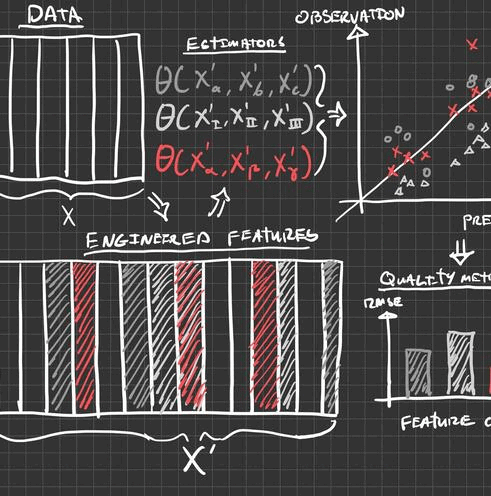 DATA
X
ESTIMATORS
θ(X'a, X'b, X'c)
θ(X'I, X'II, X'III)
θ(X'α, X'β, X'γ)
OBSERVATION
PRE
ENGINEERED FEATURES
X'
QUALITY MET
RMSE
FEATURE C